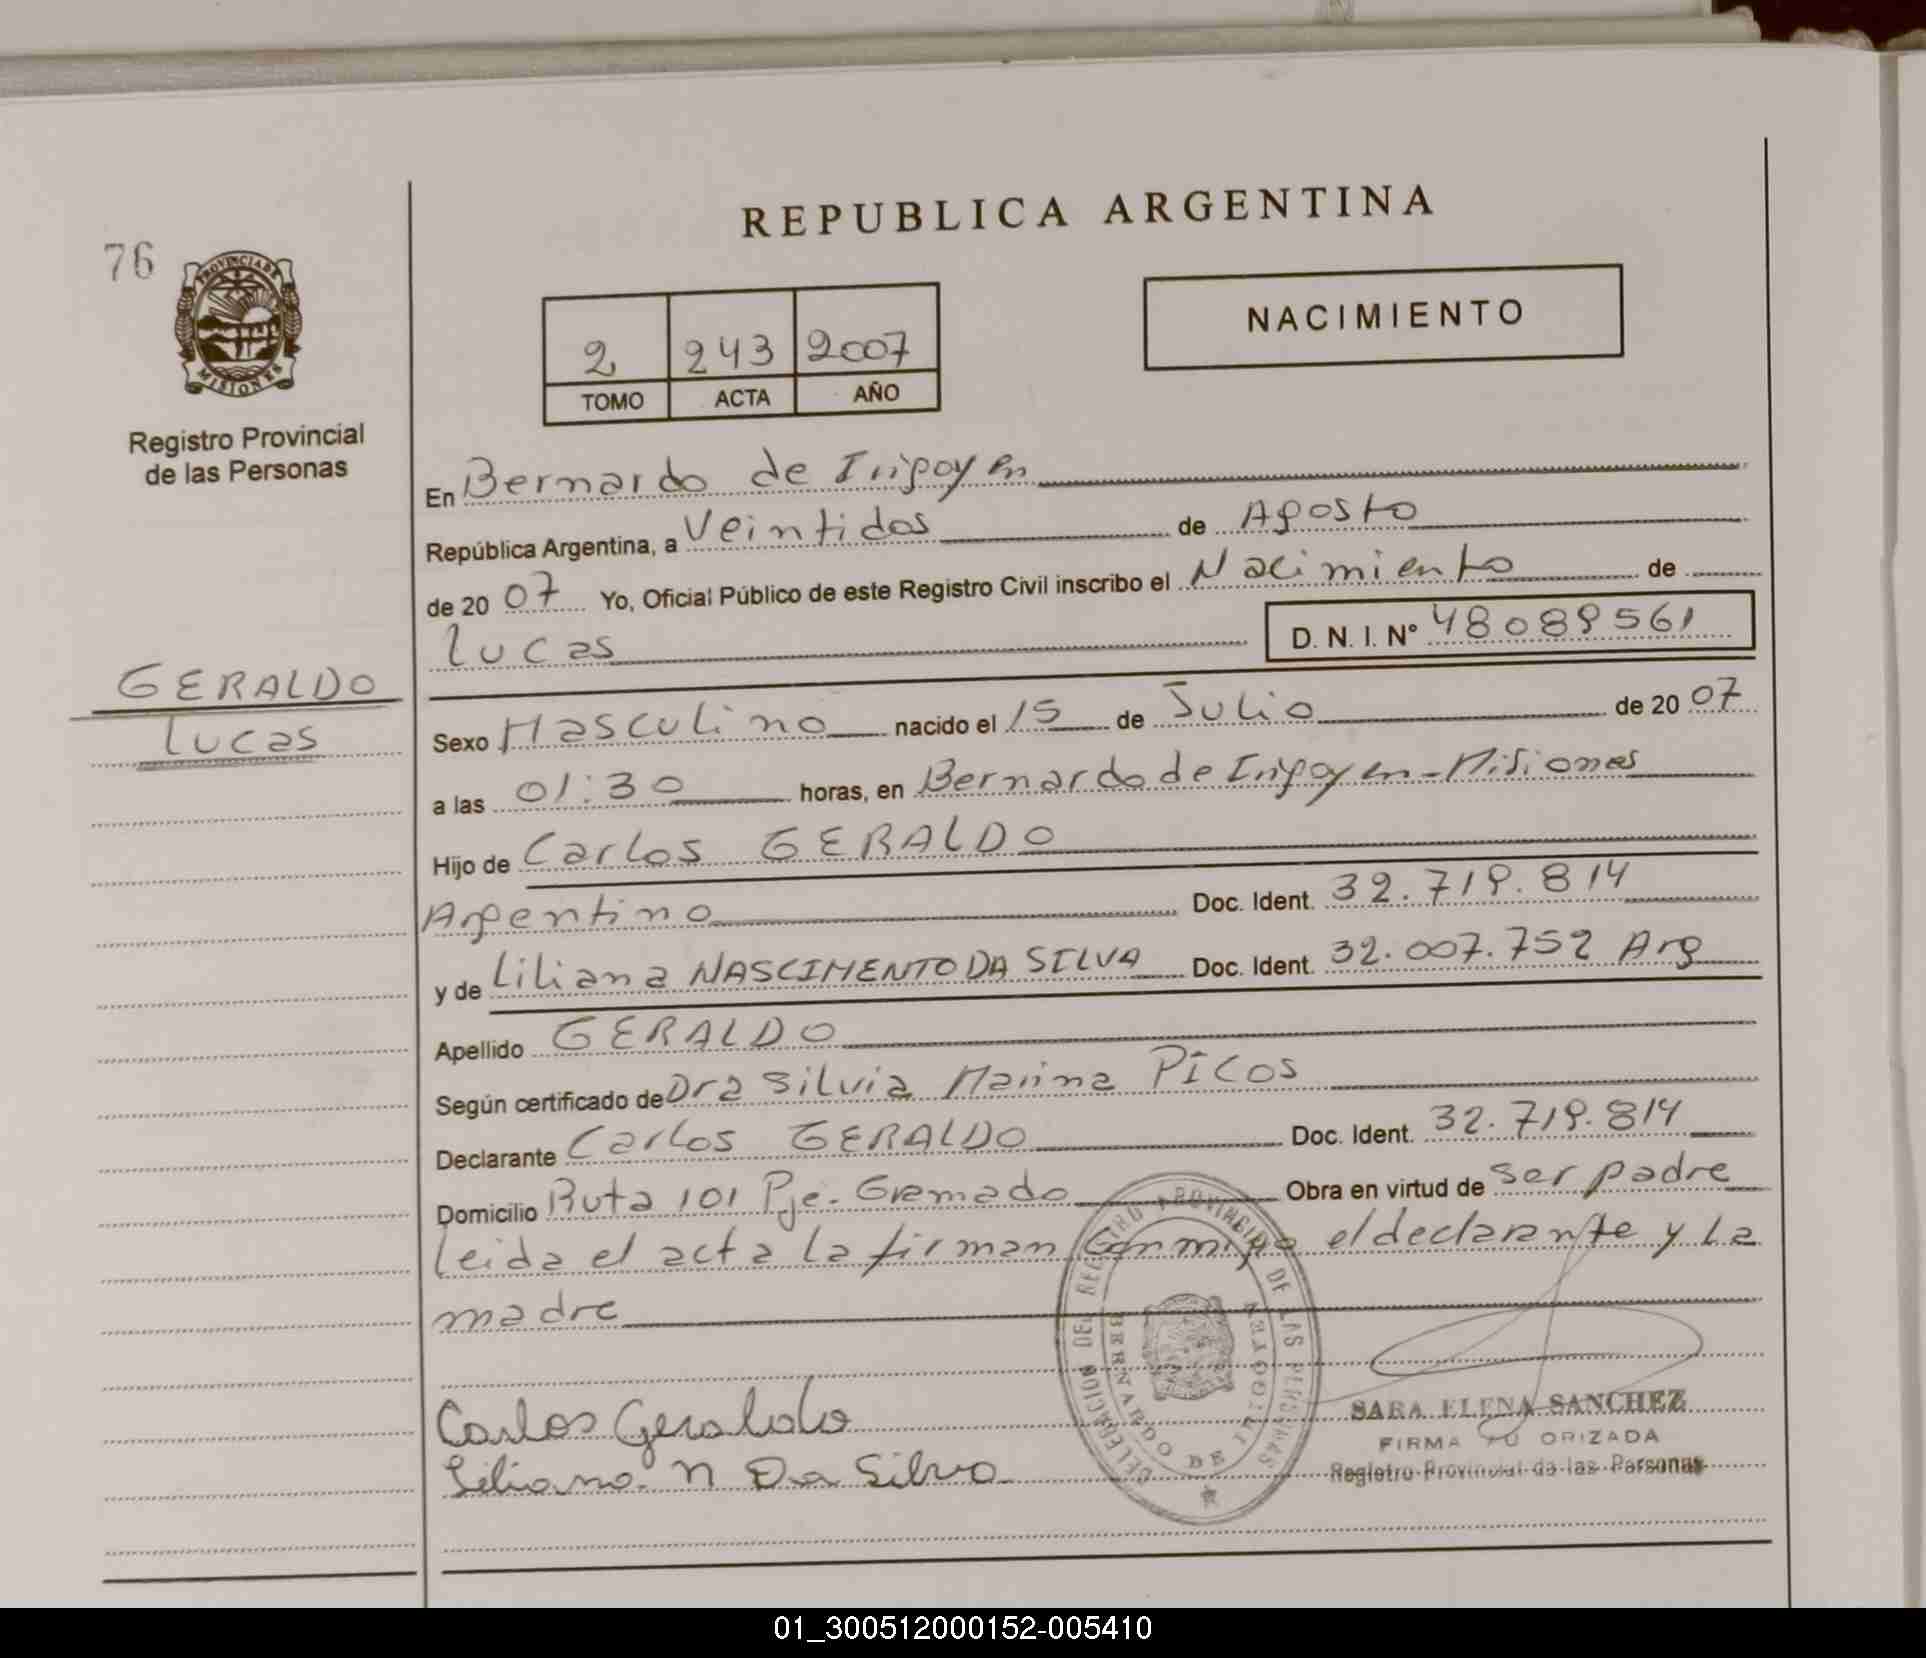 REPUBLICA ARGENTINA
76
PROVINCIA DE
MISIONES
Registro Provincial
de las Personas
2 243 2007
TOMO ACTA AÑO
NACIMIENTO
En Bernardo de Irigoyen
República Argentina, a Veintidos de Agosto
de 20 07 Yo, Oficial Público de este Registro Civil inscribo el Nacimiento de
Lucas D. N. I. Nº 48089561
GERALDO
Lucas
Sexo Masculino nacido el 15 de Julio de 20 07
a las 01:30 horas, en Bernardo de Irigoyen - Misiones
Hijo de Carlos GERALDO
Argentino Doc. Ident. 32.719.814
y de Liliana NASCIMENTO DA SILVA Doc. Ident. 32.007.752 Arg
Apellido GERALDO
Según certificado de Dra Silvia Marina PICOS
Declarante Carlos GERALDO Doc. Ident. 32.719.814
Domicilio Ruta 101 Pje. Gramado Obra en virtud de ser padre
Leida el acta la firman conmigo el declarante y La
madre
DELEGACION DEL REGISTRO PROVINCIAL DE LAS PERSONAS
BERNARDO DE IRIGOYEN
Carlos Geraldo
Liliana N Da Silva
SARA ELENA SANCHEZ
FIRMA AUTORIZADA
Registro Provincial de las Personas
01_300512000152-005410